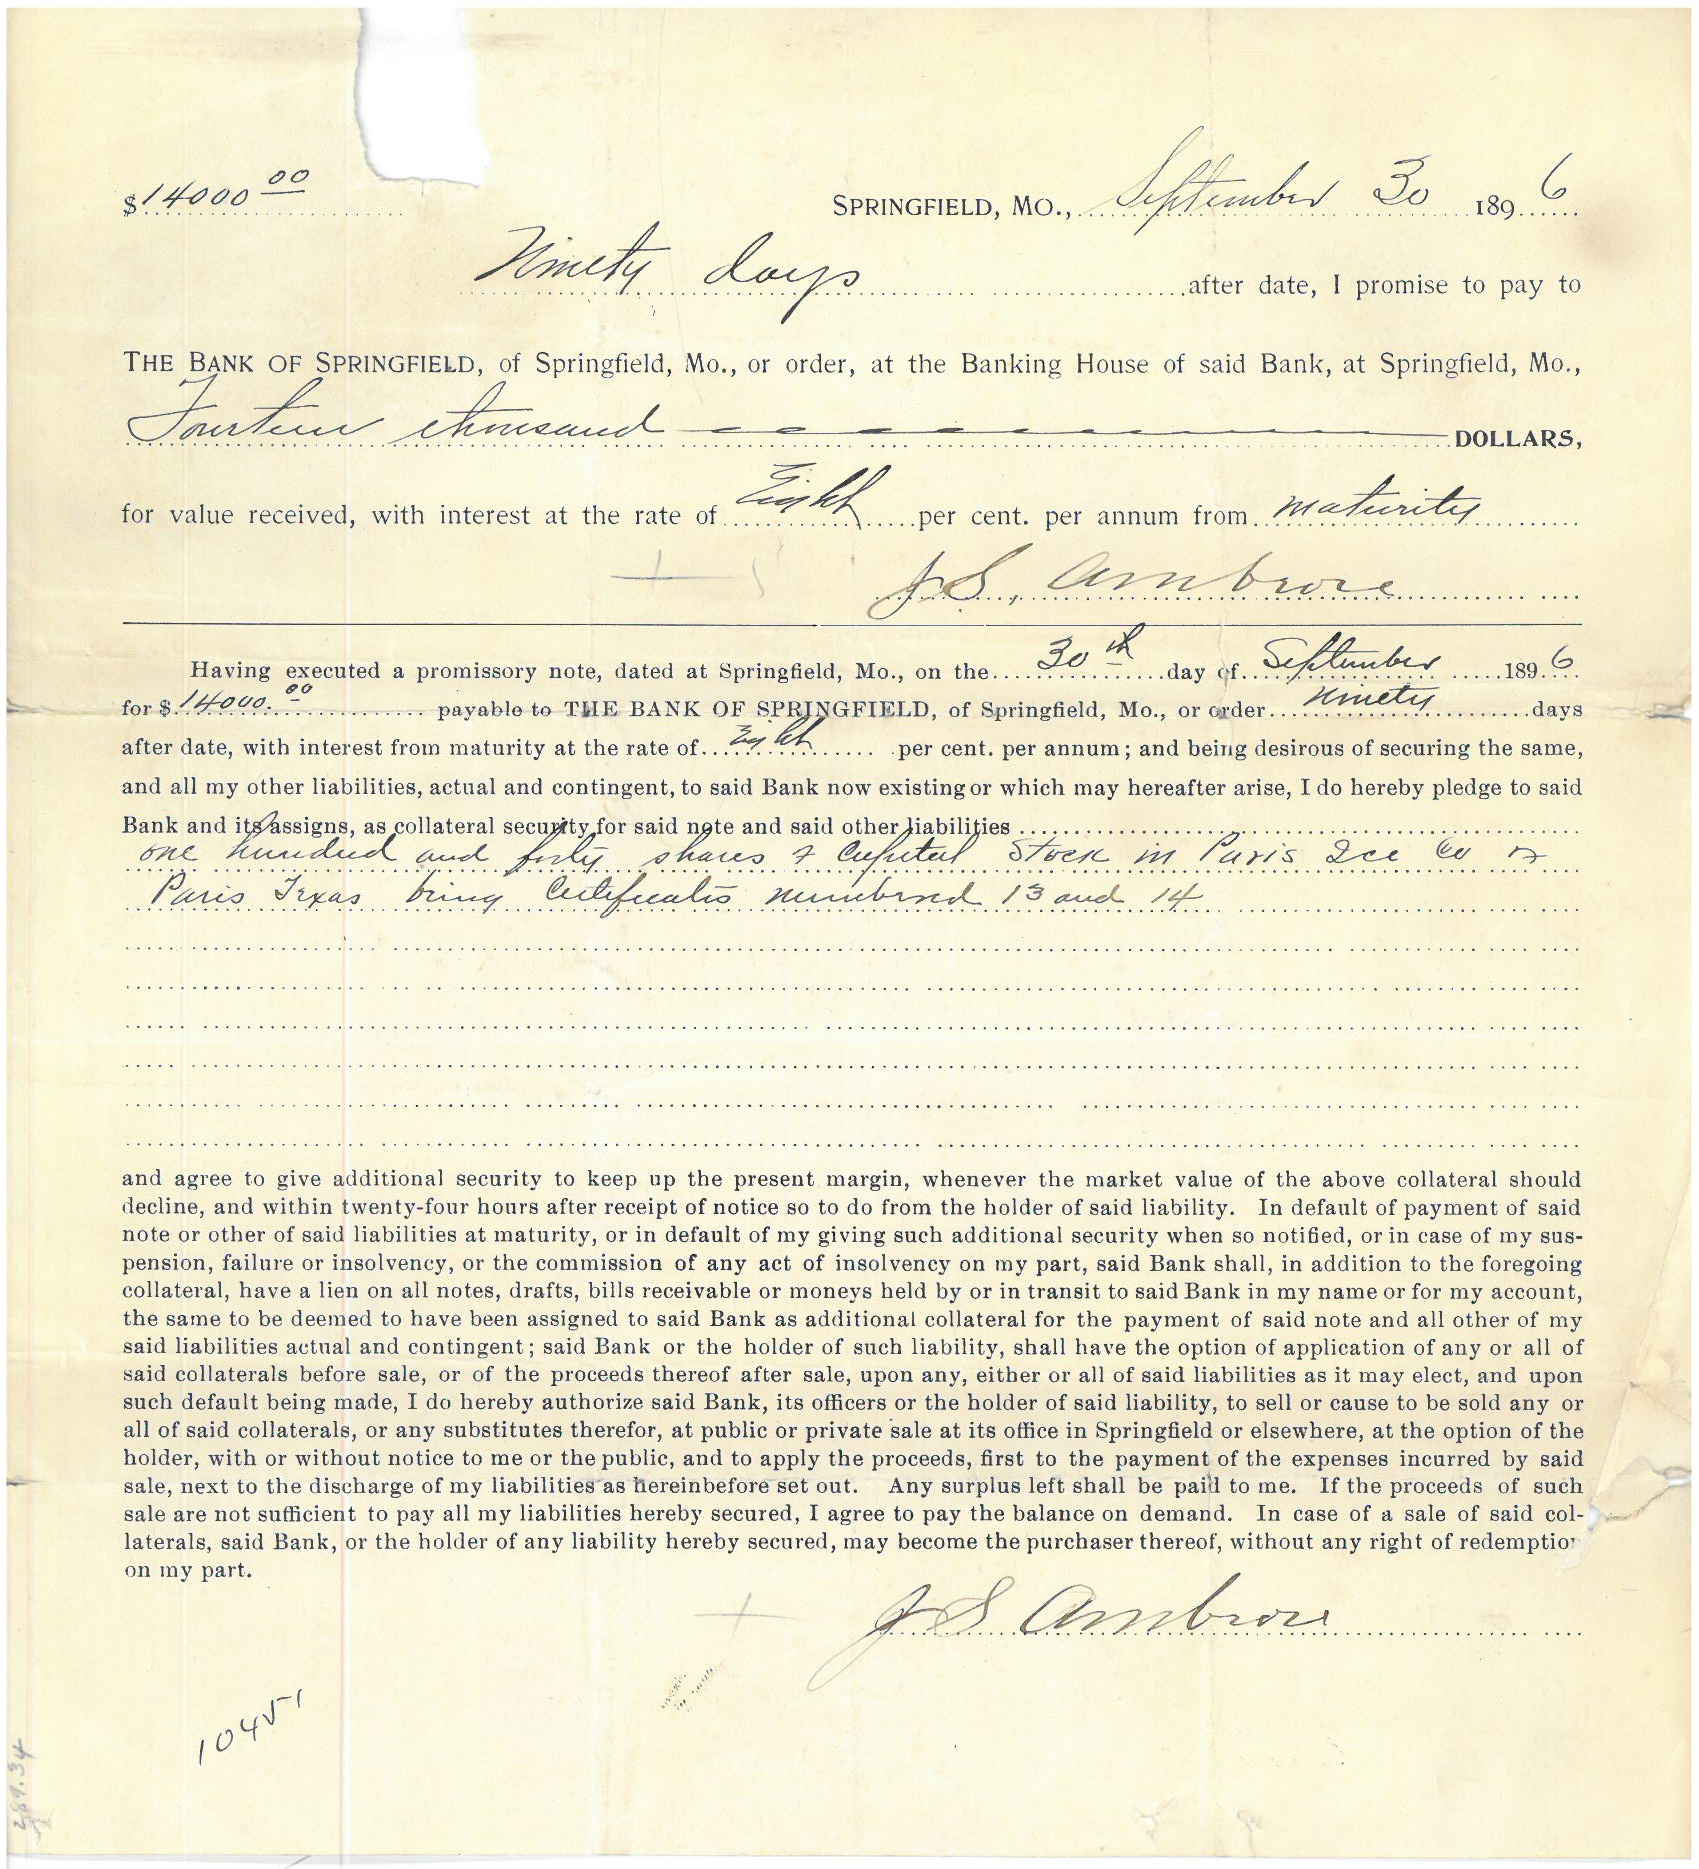 $14000 00
SPRINGFIELD, MO., September 30 1896
Ninety days after date, I promise to pay to
THE BANK OF SPRINGFIELD, of Springfield, Mo., or order, at the Banking House of said Bank, at Springfield, Mo.,
Fourteen thousand DOLLARS,
for value received, with interest at the rate of Eight per cent. per annum from maturity
J S, Ambrose
Having executed a promissory note, dated at Springfield, Mo., on the 30th day of September 1896
for $14000.00 payable to THE BANK OF SPRINGFIELD, of Springfield, Mo., or order Ninety days
after date, with interest from maturity at the rate of Eight per cent. per annum; and being desirous of securing the same,
and all my other liabilities, actual and contingent, to said Bank now existing or which may hereafter arise, I do hereby pledge to said
Bank and its assigns, as collateral security for said note and said other liabilities
one hundred and forty shares of Capital Stock in Paris Ice Co of
Paris Texas being Certificates numbered 13 and 14
and agree to give additional security to keep up the present margin, whenever the market value of the above collateral should
decline, and within twenty-four hours after receipt of notice so to do from the holder of said liability. In default of payment of said
note or other of said liabilities at maturity, or in default of my giving such additional security when so notified, or in case of my sus-
pension, failure or insolvency, or the commission of any act of insolvency on my part, said Bank shall, in addition to the foregoing
collateral, have a lien on all notes, drafts, bills receivable or moneys held by or in transit to said Bank in my name or for my account,
the same to be deemed to have been assigned to said Bank as additional collateral for the payment of said note and all other of my
said liabilities actual and contingent; said Bank or the holder of such liability, shall have the option of application of any or all of
said collaterals before sale, or of the proceeds thereof after sale, upon any, either or all of said liabilities as it may elect, and upon
such default being made, I do hereby authorize said Bank, its officers or the holder of said liability, to sell or cause to be sold any or
all of said collaterals, or any substitutes therefor, at public or private sale at its office in Springfield or elsewhere, at the option of the
holder, with or without notice to me or the public, and to apply the proceeds, first to the payment of the expenses incurred by said
sale, next to the discharge of my liabilities as hereinbefore set out. Any surplus left shall be paid to me. If the proceeds of such
sale are not sufficient to pay all my liabilities hereby secured, I agree to pay the balance on demand. In case of a sale of said col-
laterals, said Bank, or the holder of any liability hereby secured, may become the purchaser thereof, without any right of redemption
on my part.
J S Ambrose
10451